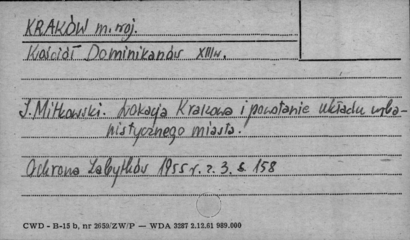 KRAKÓW m. woj.
Kościół Dominikanów XIIIw.
J. Mitkowski. Lokacja Krakowa i powstanie układu urba-
nistycznego miasta.
Ochrona Zabytków 1955 r. z. 3. s 158
CWD - B-15 b, nr 2659/ZW/P — WDA 3287 2.12.61 989.000